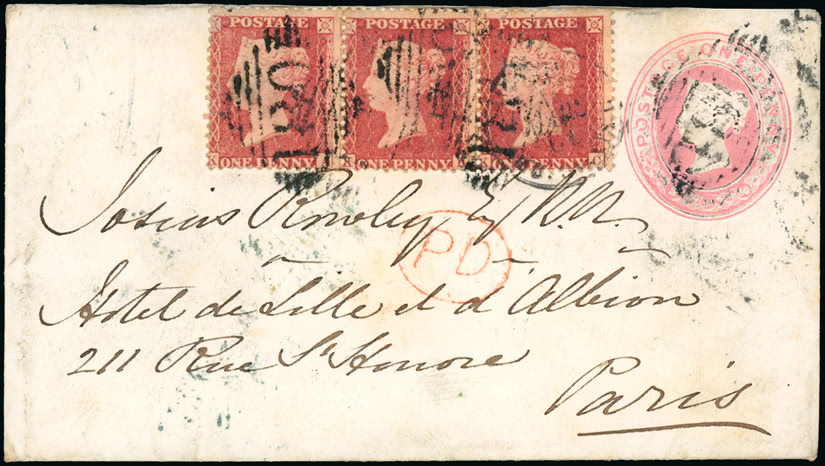 POSTAGE POSTAGE POSTAGE
ONE PENNY ONE PENNY ONE PENNY
POSTAGE ONE PENNY
Josias Rowley
PD
Hotel de Lille et d'Albion
211 Rue St Honore
Paris